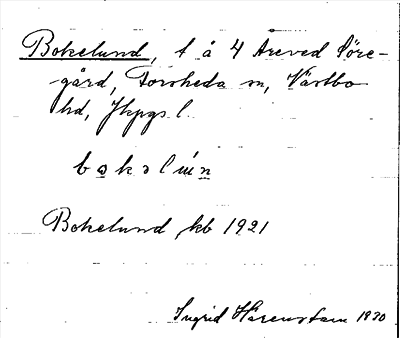 Bokelund, t å 4 Areved Söre-
gård, Forsheda sn, Västbo
hd, Jkpgs l.
bokəlún
Bokelund kb 1921
Ingrid Harenstam 1930